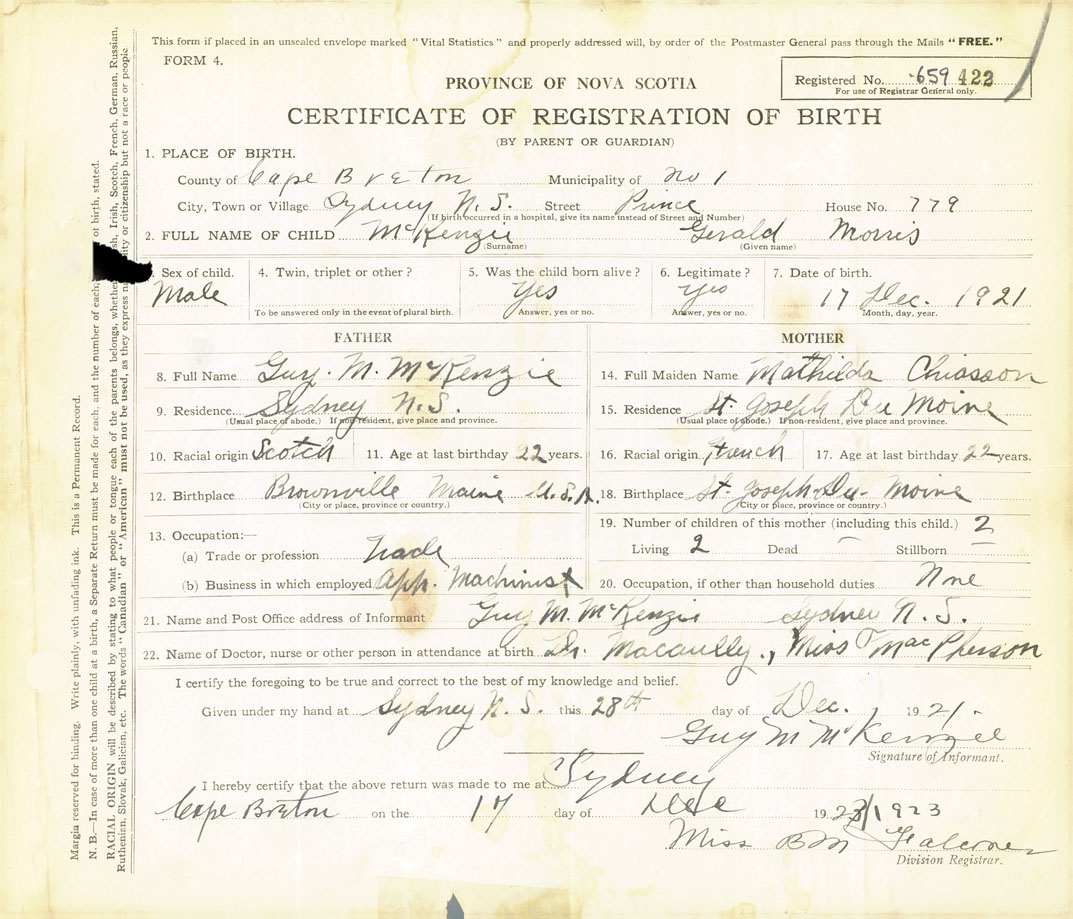 This form if placed in an unsealed envelope marked "Vital Statistics" and properly addressed will, by order of the Postmaster General pass through the Mails "FREE."
FORM 4.
Registered No. 659 422
For use of Registrar General only.
PROVINCE OF NOVA SCOTIA
CERTIFICATE OF REGISTRATION OF BIRTH
(BY PARENT OR GUARDIAN)
1. PLACE OF BIRTH.
County of Cape Breton Municipality of No 1
City, Town or Village Sydney N.S. Street Prince House No. 779
(If birth occurred in a hospital, give its name instead of Street and Number)
2. FULL NAME OF CHILD McKenzie Gerald Morris
(Surname) (Given name)
Sex of child. 4. Twin, triplet or other? 5. Was the child born alive? 6. Legitimate? 7. Date of birth.
Male Yes Yes 17 Dec. 1921
To be answered only in the event of plural birth. Answer, yes or no. Answer, yes or no. Month, day, year.
FATHER MOTHER
8. Full Name Guy. M. McKenzie 14. Full Maiden Name Mathilda Chiasson
9. Residence. Sydney N.S. 15. Residence St. Joseph Du Moine
(Usual place of abode.) If non-resident, give place and province. (Usual place of abode.) If non-resident, give place and province.
10. Racial origin Scotch 11. Age at last birthday 22 years. 16. Racial origin French 17. Age at last birthday 22 years.
12. Birthplace Brownville Maine U.S.A. 18. Birthplace St. Joseph Du- Moine
(City or place, province or country.) (City or place, province or country.)
19. Number of children of this mother (including this child.) 2
13. Occupation:—
Living 2 Dead — Stillborn —
(a) Trade or profession Trade
(b) Business in which employed App. Machinist 20. Occupation, if other than household duties None
21. Name and Post Office address of Informant Guy M. McKenzie Sydney N.S.
22. Name of Doctor, nurse or other person in attendance at birth Dr. Macaully., Miss MacPherson
I certify the foregoing to be true and correct to the best of my knowledge and belief.
Given under my hand at Sydney N.S. this 28th day of Dec. 1921.
Guy M McKenzie
Signature of Informant.
I hereby certify that the above return was made to me at Sydney
Cape Breton on the 17 day of Dec 1923/1923
Miss BM Falconer
Division Registrar.
Margia reserved for binding. Write plainly, with unfading ink. This is a Permanent Record.
N. B.—In case of more than one child at a birth, a Separate Return must be made for each, and the number of each, of birth, stated.
RACIAL ORIGIN will be described by stating to what people or tongue each of the parents belongs, whether Irish, Scotch, French, German, Russian,
Ruthenian, Slovak, Galician, etc. The words "Canadian" or "American" must not be used, as they express or citizenship but not a race or people.